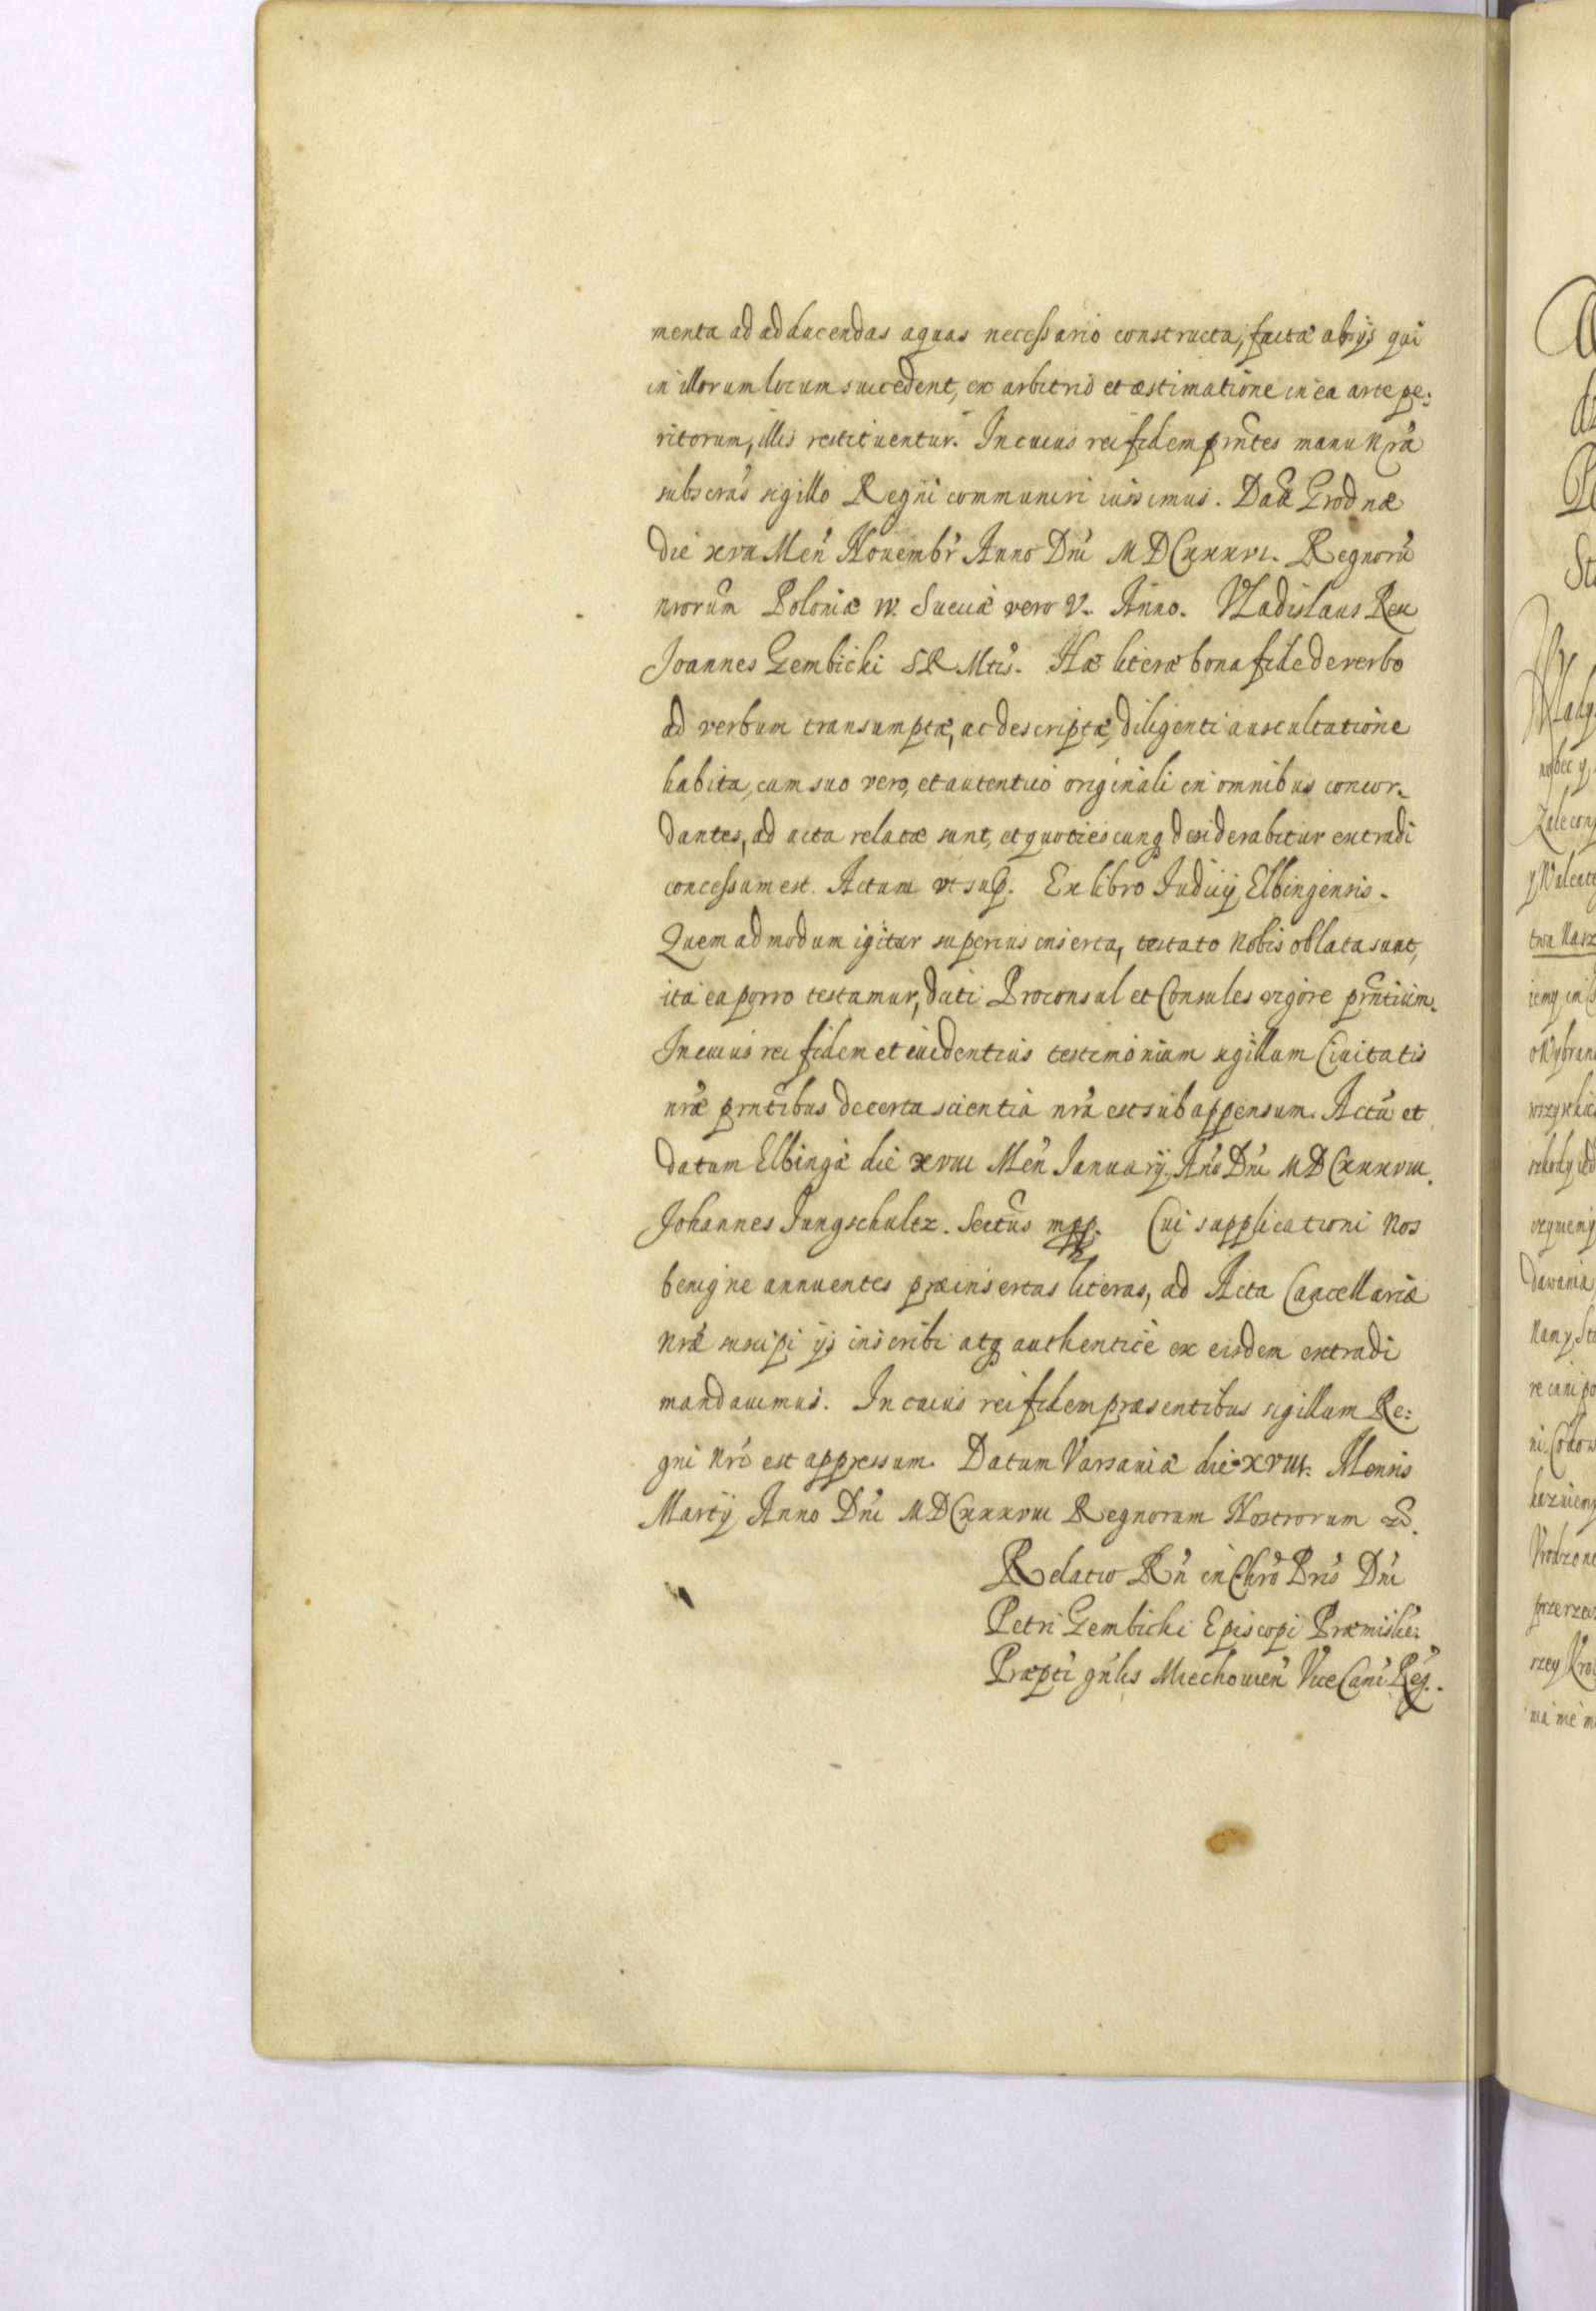 menta ad adducendas aquas necessario constructa, facta ab ijs qui
in illorum locum succedent, ex arbitrio et æstimatione in ea arte pe:
ritorum, illis restituentur. In cuius rei fidem prntes manu Nra
subscras sigillo Regni communiri iussimus. Datt Grodnæ
die xvii Men Novembr Anno Dni MDCxxxvi. Regnorū
nrorum Poloniæ iv. Sueciæ vero V. Anno. Vladislaus Rex
Joannes Gembicki SR Mtis. Hæ literæ bona fide de verbo
ad verbum transumptæ, ac descriptæ, diligenti auscultatione
habita, cum suo vero, et autentico originali in omnibus concor-
dantes, ad acta relatæ sunt, et quotiescunq desiderabitur extradi
concessum est. Actum ut sup. Ex libro Judicij Elbingensis.
Quemadmodum igitur superius inserta, testato nobis oblata sunt,
ita ea porro testamur, dicti Proconsul et Consules vigore prntium.
In cuius rei fidem et evidentius testimonium sigillum Civitatis
nræ prntibus de certa scientia nra est subappensum. Actū et
datum Elbingæ die xviii Men Januarij Ano Dni MDCxxxviii.
Johannes Jungschultz. Sectus mpp. Cui supplicationi Nos
benigne annuentes præinsertas literas, ad Acta Cancellariæ
Nræ suscipi ijs inscribi atq authentice ex eisdem extradi
mandavimus. In cuius rei fidem præsentibus sigillum Re:
gni Nri est appressum. Datum Varsaviæ die XVIII. Mensis
Martij Anno Dni MDCxxxviii Regnorum Nostrorum &.
Relatio Rn in Chro Pris Dni
Petri Gembicki Episcopi Præmisli:
Præpti gnlis Miechovien Vice Canc Reg.